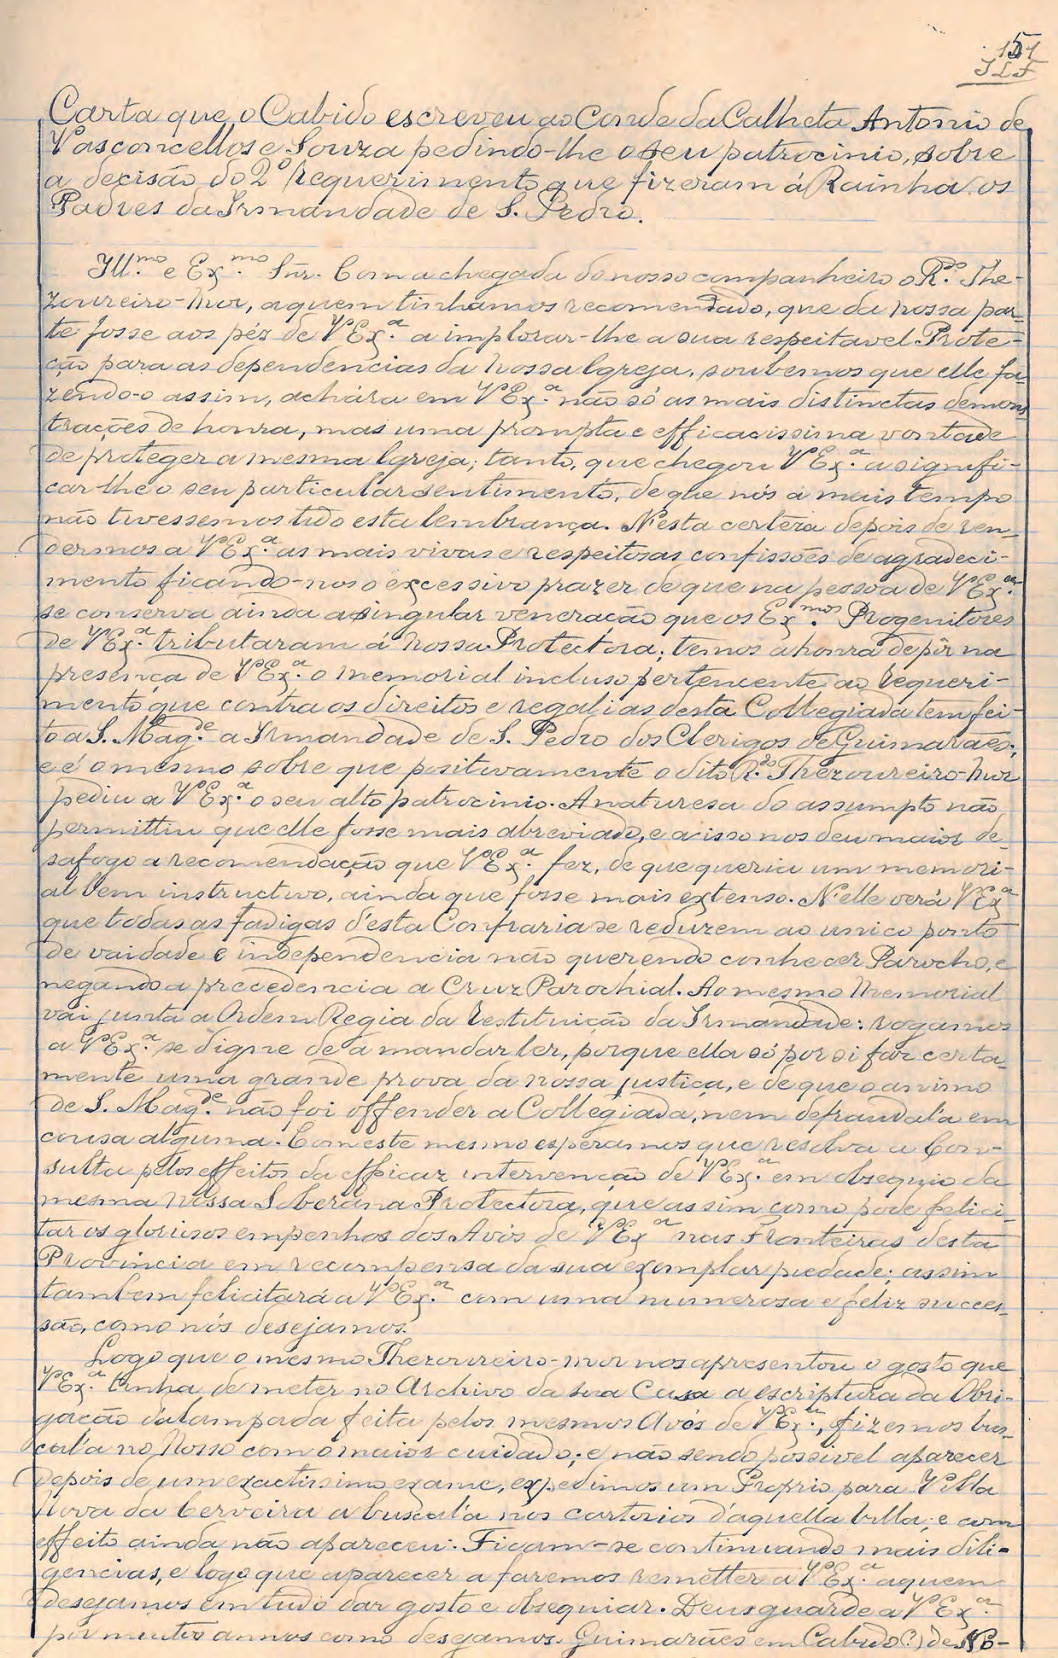 151
J L F
Carta que o Cabido escreveu ao Conde da Calheta Antonio de
Vasconcellos e Souza pedindo-lhe o seu patrocinio, sobre
a decisão do 2º requerimento que fizeram á Rainha os
Padres da Irmandade de S. Pedro.
Ill.mo e Ex.mo Snr. Com a chegada do nosso companheiro o R.do The-
zoureiro-mor, a quem tinhamos recomendado, que da nossa par-
te fosse aos pés de V Ex.a a implorar-lhe a sua respeitavel Prote-
ção para as dependencias da nossa Igreja, soubemos que elle fa-
zendo-o assim, achára em V Ex.a não só as mais distinctas demons
trações de honra, mas uma prompta e efficacissima vontade
de proteger a mesma Igreja; tanto, que chegou V Ex.a a signifi-
car-lhe o seu particular sentimento, de que nós a mais tempo
não tivessemos tido esta lembrança. N'esta certera depois de ren-
dermos a V Ex.a as mais vivas e respeitosas confissões de agradeci-
mento ficando-nos o excessivo prazer de que na pessoa de V Ex.a
se conserva ainda a singular veneração que os Ex.mos Progenitores
de V Ex.a tributaram á nossa Protectora; temos a honra de pôr na
presença de V Ex.a o memorial incluso pertencente ao requeri-
mento que contra os direitos e regalias desta Collegiada tem fei-
to a S. Mag.de a Irmandade de S. Pedro dos Clerigos de Guimarães;
e é o mesmo sobre que positivamente o dito R.do Thezoureiro-mor
pediu a V Ex.a o seu alto patrocinio. A naturesa do assumpto não
permittiu que elle fosse mais abreviado, e a isso nos deu maior de-
safogo a recomendação que V Ex.a fez, de que queria um memori-
al bem instructivo, ainda que fosse mais extenso. N'elle verá V Ex.a
que todas as fadigas d'esta Confraria se reduzem ao unico ponto
de vaidade e independencia não querendo conhecer Parocho, e
negando a precedencia a Cruz Parochial. Ao mesmo Memorial
vai junta a Ordem Regia da Restituição da Irmandade: rogamos
a V Ex.a se digne de a mandar ler, porque ella só por si faz certa-
mente uma grande prova da nossa justiça, e de que o animo
de S. Mag.de não foi offender a Collegiada, nem defraudal'a em
cousa alguma. Com este mesmo esperamos que resolva a Con-
sulta pelos effeitos da efficaz intervenção de V Ex.a em obsequio da
mesma Nossa Soberana Protectora, que assim como pode felici-
tar os gloriosos empenhos dos Avós de V Ex.a nas Fronteiras desta
Provincia em recompensa da sua exemplar piedade; assim
tambem felicitará a V Ex.a com uma numerosa e feliz succes-
são, como nós desejamos.
Logo que o mesmo Thezoureiro-mor nos apresentou o gosto que
V Ex.a tinha de meter no Archivo da sua Casa a escriptura da Obri-
gação d'alampada feita pelos mesmos Avós de V Ex.a, fizemos bus-
cal'a no Nosso com o maior cuidado; e não sendo possivel aparecer
depois de um exactissimo exame, expedimos um Proprio para Villa
Nova da Cerveira a buscal'a nos cartorios d'aquella Villa; e com
effeito ainda não apareceu. Ficam-se continuando mais dili-
gencias, e logo que aparecer a faremos remetter a V Ex.a a quem
desejamos em tudo dar gosto e obsequiar. Deus guarde a V Ex.a
por muitos annos como desejamos. Guimarães em Cabido (?) de No-